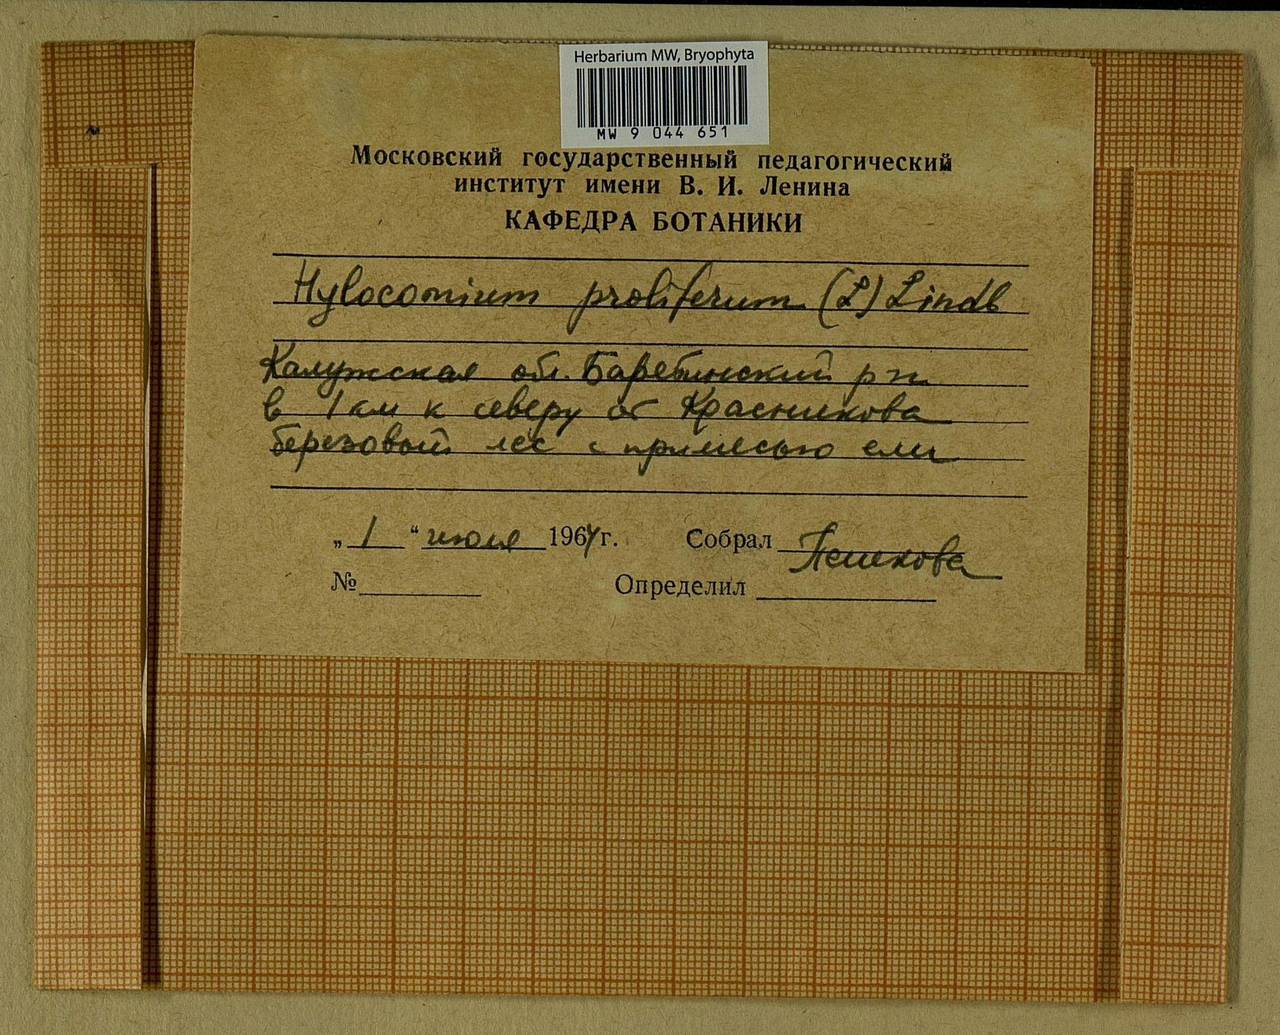 Herbarium MW, Bryophyta
MW 9 044 651
Московский государственный педагогический
институт имени В. И. Ленина
КАФЕДРА БОТАНИКИ
Hylocomium proliferum (L) Lindb
Калужская обл. Барятинский р-н
в 1 км к северу от Красникова
березовый лес с примесью ели
„ 1 “ июля 1964 г. Собрал Пешкова
№ Определил